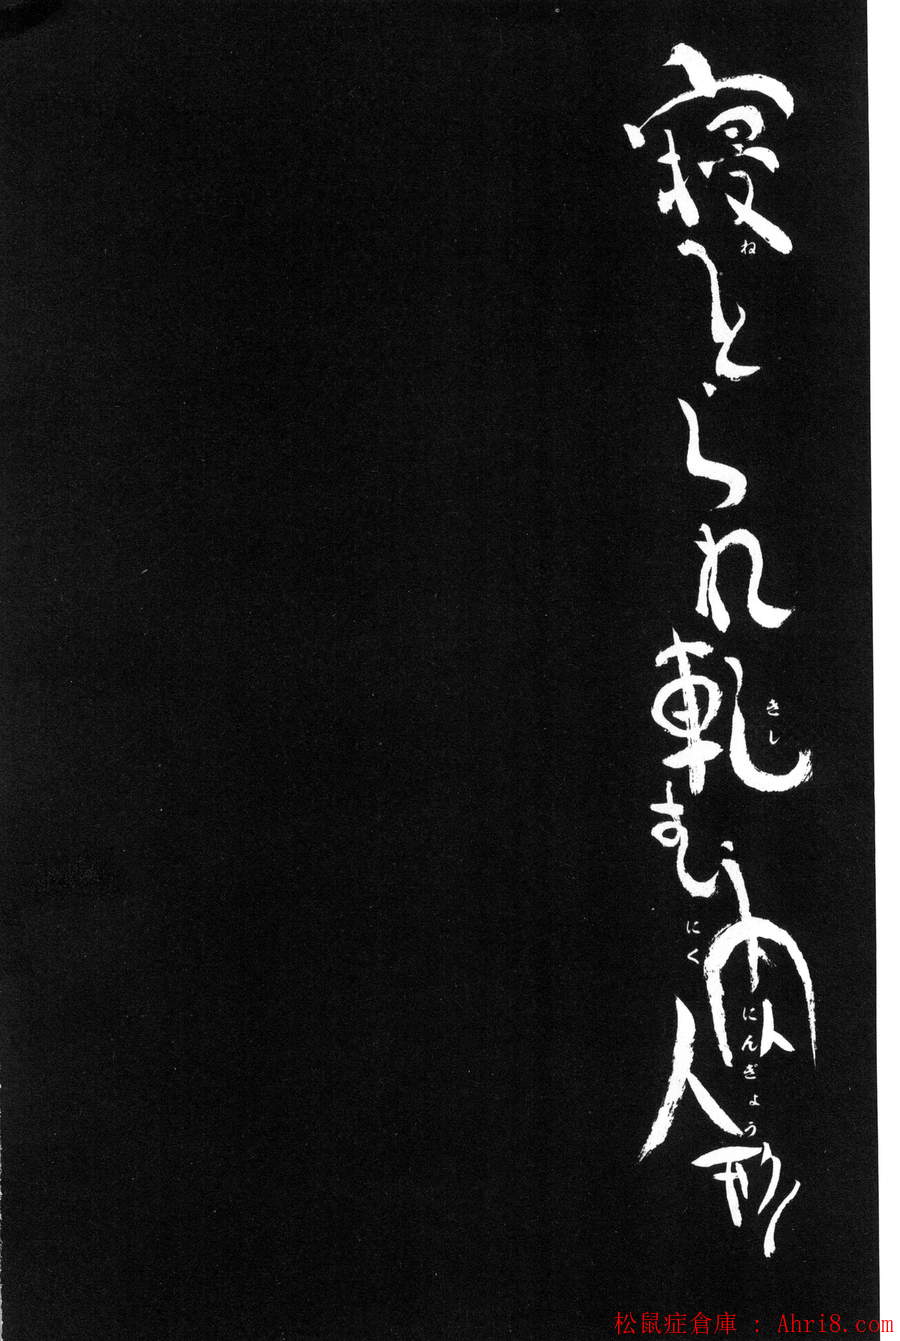 寝とられ軋む肉人形
ね
きし
にく
にんぎょう
松鼠症倉庫 : Ahri8.com